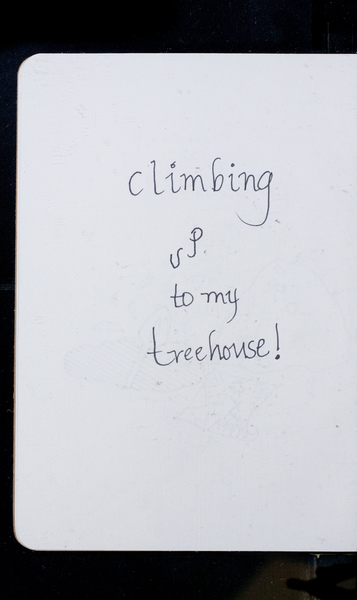 climbing
up
to my
treehouse!